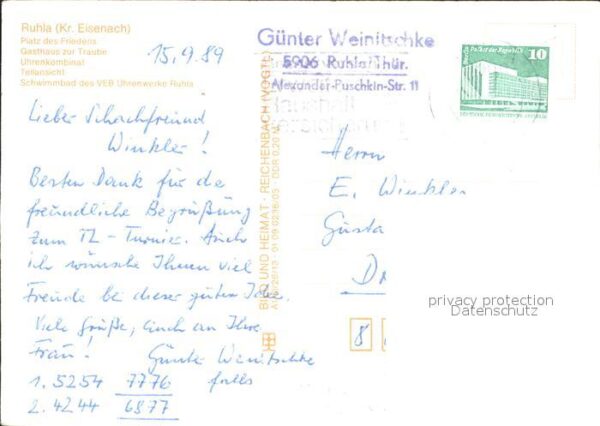 Ruhla (Kr. Eisenach)
Platz des Friedens
Gasthaus zur Traube
Uhrenkombinat
Teilansicht
Schwimmbad des VEB Uhrenwerke Ruhla
15.9.89
Günter Weinitschke
5906 Ruhla/Thür.
Alexander-Puschkin-Str. 11
Haushalt
Palast der Republik 10
Lieber Schachfreund
Winkler!
Besten Dank für die
freundliche Begrüßung
zum TL-Turnier. Auch
ich wünsche Ihnen viel
Freude bei dieser guten Idee.
Viele Grüße, auch an Ihre
Frau! Günter Weinitschke
1. 5254 7776 falls
2. 4244 6877
BILD UND HEIMAT · REICHENBACH (VOGTL)
Herrn
E. Winkler
Gusta
D
8
privacy protection
Datenschutz